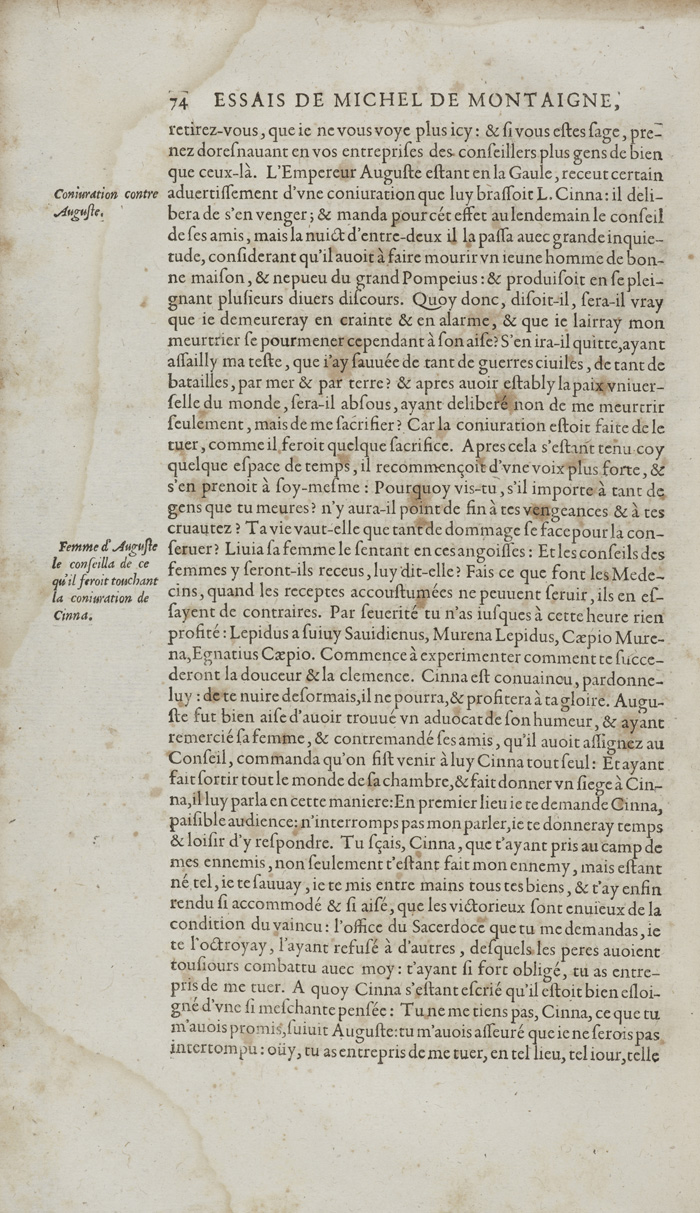 74 ESSAIS DE MICHEL DE MONTAIGNE,
retirez-vous, que ie ne vous voye plus icy: & ſi vous eſtes ſage, pre-
nez doreſnauant en vos entrepriſes des conſeillers plus gens de bien
que ceux-là. L'Empereur Auguſte eſtant en la Gaule, receut certain
Coniuration contre
Auguſte.
aduertiſſement d'vne coniuration que luy braſſoit L. Cinna: il deli-
bera de s'en venger; & manda pour cét effet au lendemain le conſeil
de ſes amis, mais la nuict d'entre-deux il la paſſa auec grande inquie-
tude, conſiderant qu'il auoit à faire mourir vn ieune homme de bon-
ne maiſon, & nepueu du grand Pompeius: & produiſoit en ſe plei-
gnant pluſieurs diuers diſcours. Quoy donc, diſoit-il, ſera-il vray
que ie demeureray en crainte & en alarme, & que ie lairray mon
meurtrier ſe pourmener cependant à ſon aiſe? S'en ira-il quitte, ayant
aſſailly ma teſte, que i'ay ſauuée de tant de guerres ciuiles, de tant de
batailles, par mer & par terre? & apres auoir eſtably la paix vniuer-
ſelle du monde, ſera-il abſous, ayant deliberé non de me meurtrir
ſeulement, mais de me ſacrifier? Car la coniuration eſtoit faite de le
tuer, comme il feroit quelque ſacrifice. Apres cela s'eſtant tenu coy
quelque eſpace de temps, il recommençoit d'vne voix plus forte, &
s'en prenoit à ſoy-meſme: Pourquoy vis-tu, s'il importe à tant de
gens que tu meures? n'y aura-il point de fin à tes vengeances & à tes
cruautez? Ta vie vaut-elle que tant de dommage ſe face pour la con-
Femme d'Auguſte
le conſeilla de ce
qu'il feroit touchant
la coniuration de
Cinna.
ſeruer? Liuia ſa femme le ſentant en ces angoiſſes: Et les conſeils des
femmes y ſeront-ils receus, luy dit-elle? Fais ce que font les Mede-
cins, quand les receptes accouſtumées ne peuuent ſeruir, ils en eſ-
ſayent de contraires. Par ſeuerité tu n'as iuſques à cette heure rien
profité: Lepidus a ſuiuy Sauidienus, Murena Lepidus, Cæpio Mure-
na, Egnatius Cæpio. Commence à experimenter comment te ſucce-
deront la douceur & la clemence. Cinna eſt conuaincu, pardonne-
luy: de te nuire deſormais, il ne pourra, & profitera à ta gloire. Augu-
ſte fut bien aiſe d'auoir trouué vn aduocat de ſon humeur, & ayant
remercié ſa femme, & contremandé ſes amis, qu'il auoit aſſignez au
Conſeil, commanda qu'on fiſt venir à luy Cinna tout ſeul: Et ayant
fait ſortir tout le monde de ſa chambre, & fait donner vn ſiege à Cin-
na, il luy parla en cette maniere: En premier lieu ie te demande Cinna,
paiſible audience: n'interromps pas mon parler, ie te donneray temps
& loiſir d'y reſpondre. Tu ſçais, Cinna, que t'ayant pris au camp de
mes ennemis, non ſeulement t'eſtant fait mon ennemy, mais eſtant
né tel, ie te ſauuay, ie te mis entre mains tous tes biens, & t'ay enfin
rendu ſi accommodé & ſi aiſé, que les victorieux ſont enuieux de la
condition du vaincu: l'office du Sacerdoce que tu me demandas, ie
te l'octroyay, l'ayant refuſé à d'autres, deſquels les peres auoient
touſiours combattu auec moy: t'ayant ſi fort obligé, tu as entre-
pris de me tuer. A quoy Cinna s'eſtant eſcrié qu'il eſtoit bien eſloi-
gné d'vne ſi meſchante penſée: Tu ne me tiens pas, Cinna, ce que tu
m'auois promis, ſuiuit Auguſte: tu m'auois aſſeuré que ie ne ſerois pas
interrompu: oüy, tu as entrepris de me tuer, en tel lieu, tel iour, telle